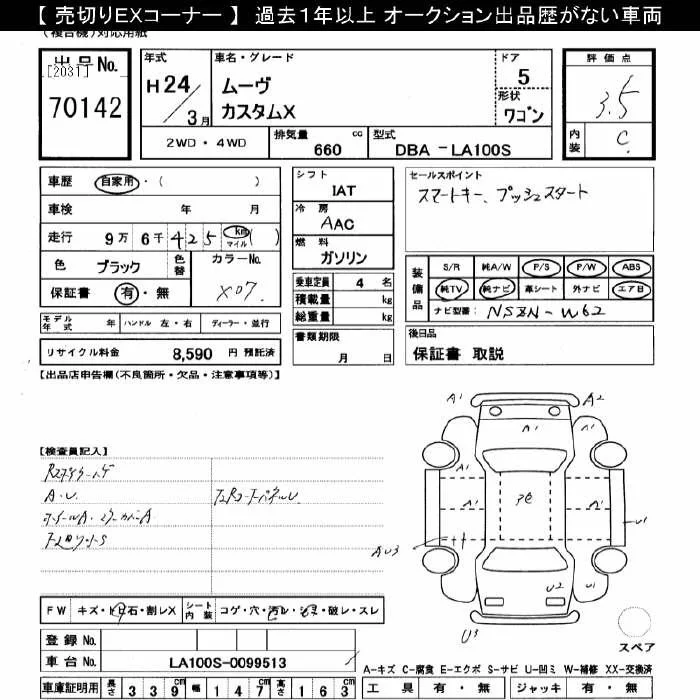 【 売切りEXコーナー 】 過去1年以上 オークション出品歴がない車両
(複合機)対応用紙
出 品 No.
[2031]
70142
年式
H 24 / 3月
車名・グレード
ムーヴ
カスタムX
ドア
5
形状
ワゴン
評 価 点
3.5
内装
C
2WD ・ 4WD
排気量 cc
660
型式
DBA －LA100S
車歴 自家用 ・ ( )
車検 年 月
走行 9 万 6 千 4 2 5 km マイル ( )
色 ブラック 色替
カラーNo.
X07
保証書 有 ・ 無
モデル年式 年 ハンドル 左・右 ディーラー・並行
リサイクル料金 8,590 円 預託済
シフト
IAT
冷 房
AAC
燃 料
ガソリン
乗車定員 4 名
積載量 kg
総重量 kg
書類期限
月 日
セールスポイント
スマートキー、プッシュスタート
装備品
S/R 純A/W P/S P/W ABS
純TV 純ナビ 革シート 外ナビ エアB
ナビ型番: NSZN-W62
後日品
保証書 取説
【出品店申告欄(不良箇所・欠品・注意事項等)】
【検査員記入】
A・U
A1 A2
A1
A1
A1 A1
U1
AU3
U2 U1
U3
スペア
FW キズ・トビ石・割レX シート内装 コゲ・穴・汚レ・シミ・破レ・スレ
登録 No.
車台 No. LA100S-0099513
車庫証明用 長さ 339 cm 幅 147 cm 高さ 163 cm
A－キズ C－腐食 E－エクボ S－サビ U－凹ミ W－補修 XX－交換済
工 具 有 ・ 無 ジャッキ 有 ・ 無